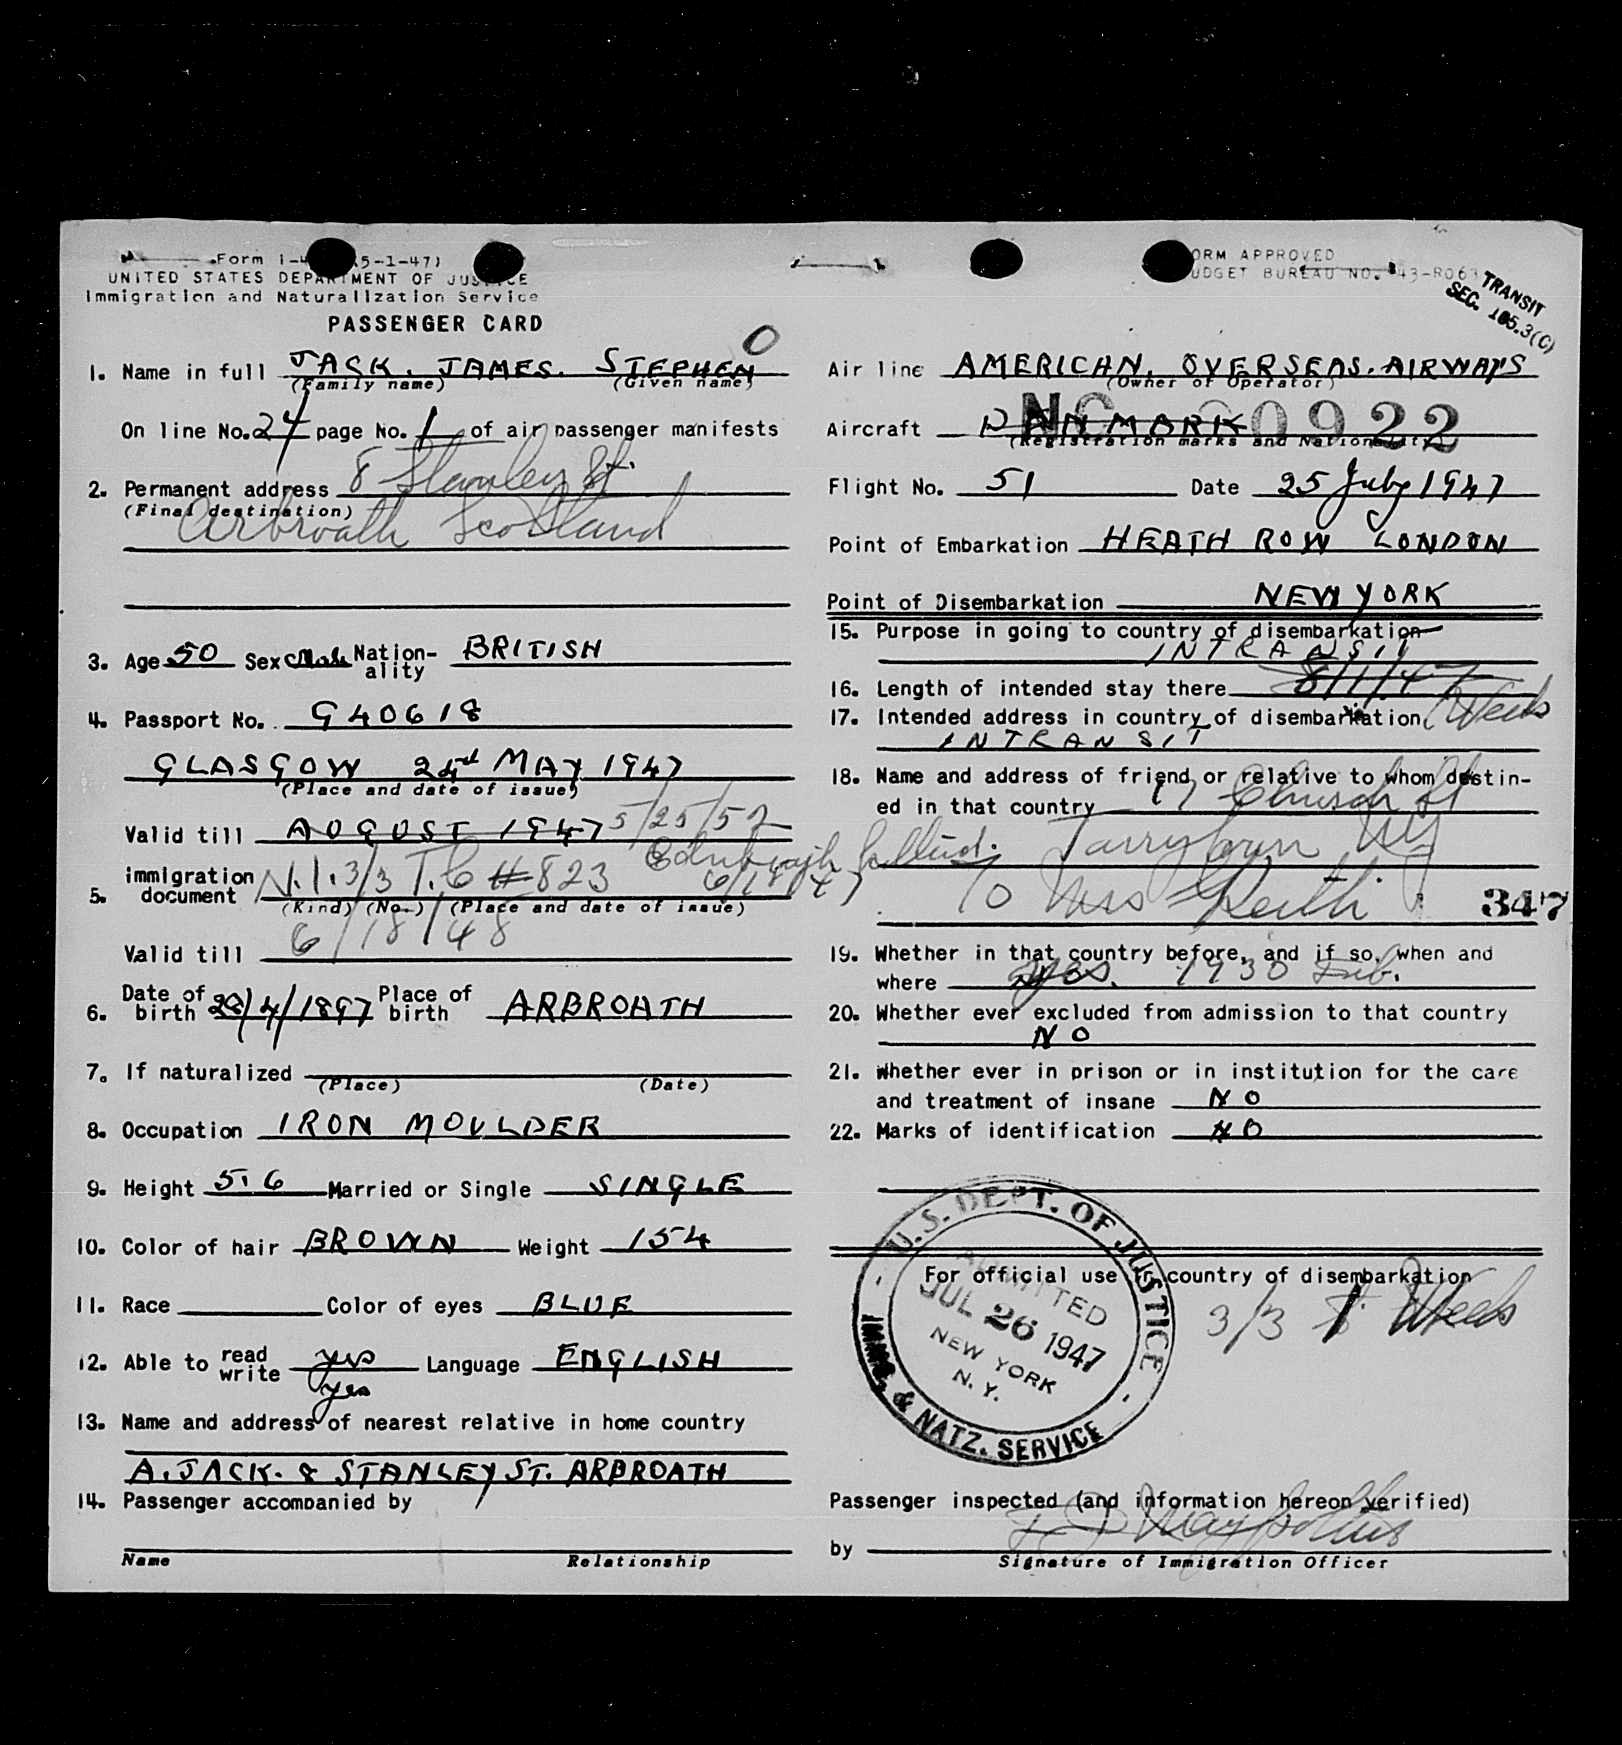 Form I- (5-1-47)
UNITED STATES DEPARTMENT OF JUSTICE
Immigration and Naturalization Service
PASSENGER CARD
0
1. Name in full JACK. JAMES. STEPHEN
(Family name) (Given name)
On line No. 24 page No. 1 of air passenger manifests
2. Permanent address 8 Stanley St.
(Final destination) Arbroath Scotland
3. Age 50 Sex Male Nation-ality BRITISH
4. Passport No. G40618
GLASGOW MAY 1947
(Place and date of issue)
Valid till AUGUST 1947 5/25/52
5. immigration document N.I. 3/3 T.C #823 Edinburgh Scotland. 6/18/47
(Kind) (No.) (Place and date of issue)
Valid till 6/18/48
6. Date of birth 28/4/1897 Place of birth ARBROATH
7. If naturalized
(Place) (Date)
8. Occupation IRON MOULDER
9. Height 5.6 Married or Single SINGLE
10. Color of hair BROWN Weight 154
11. Race Color of eyes BLUE
12. Able to read write yes yes Language ENGLISH
13. Name and address of nearest relative in home country
A. JACK. 8 STANLEY ST. ARBROATH
14. Passenger accompanied by
Name Relationship
FORM APPROVED
BUDGET BUREAU NO. 43-R063
TRANSIT
SEC. 105.3(C)
Air line AMERICAN. OVERSEAS. AIRWAYS
(Owner or Operator)
Aircraft DENMARK NC 90922
(Registration marks and Nationality)
Flight No. 51 Date 25 July 1947
Point of Embarkation HEATH ROW LONDON
Point of Disembarkation NEW YORK
15. Purpose in going to country of disembarkation
INTRANSIT
16. Length of intended stay there 8/1/47
17. Intended address in country of disembarkation
INTRANSIT
18. Name and address of friend or relative to whom destin-
ed in that country 17 Church St
Tarrytown NY
To Mrs Keith
347
19. Whether in that country before, and if so, when and
where yes. 1930
20. Whether ever excluded from admission to that country
NO
21. Whether ever in prison or in institution for the care
and treatment of insane NO
22. Marks of identification NO
For official use in country of disembarkation
3/3
U.S. DEPT. OF JUSTICE
ADMITTED
JUL 26 1947
NEW YORK
N.Y.
IMMG. & NATZ. SERVICE
Passenger inspected (and information hereon verified)
by
Signature of Immigration Officer